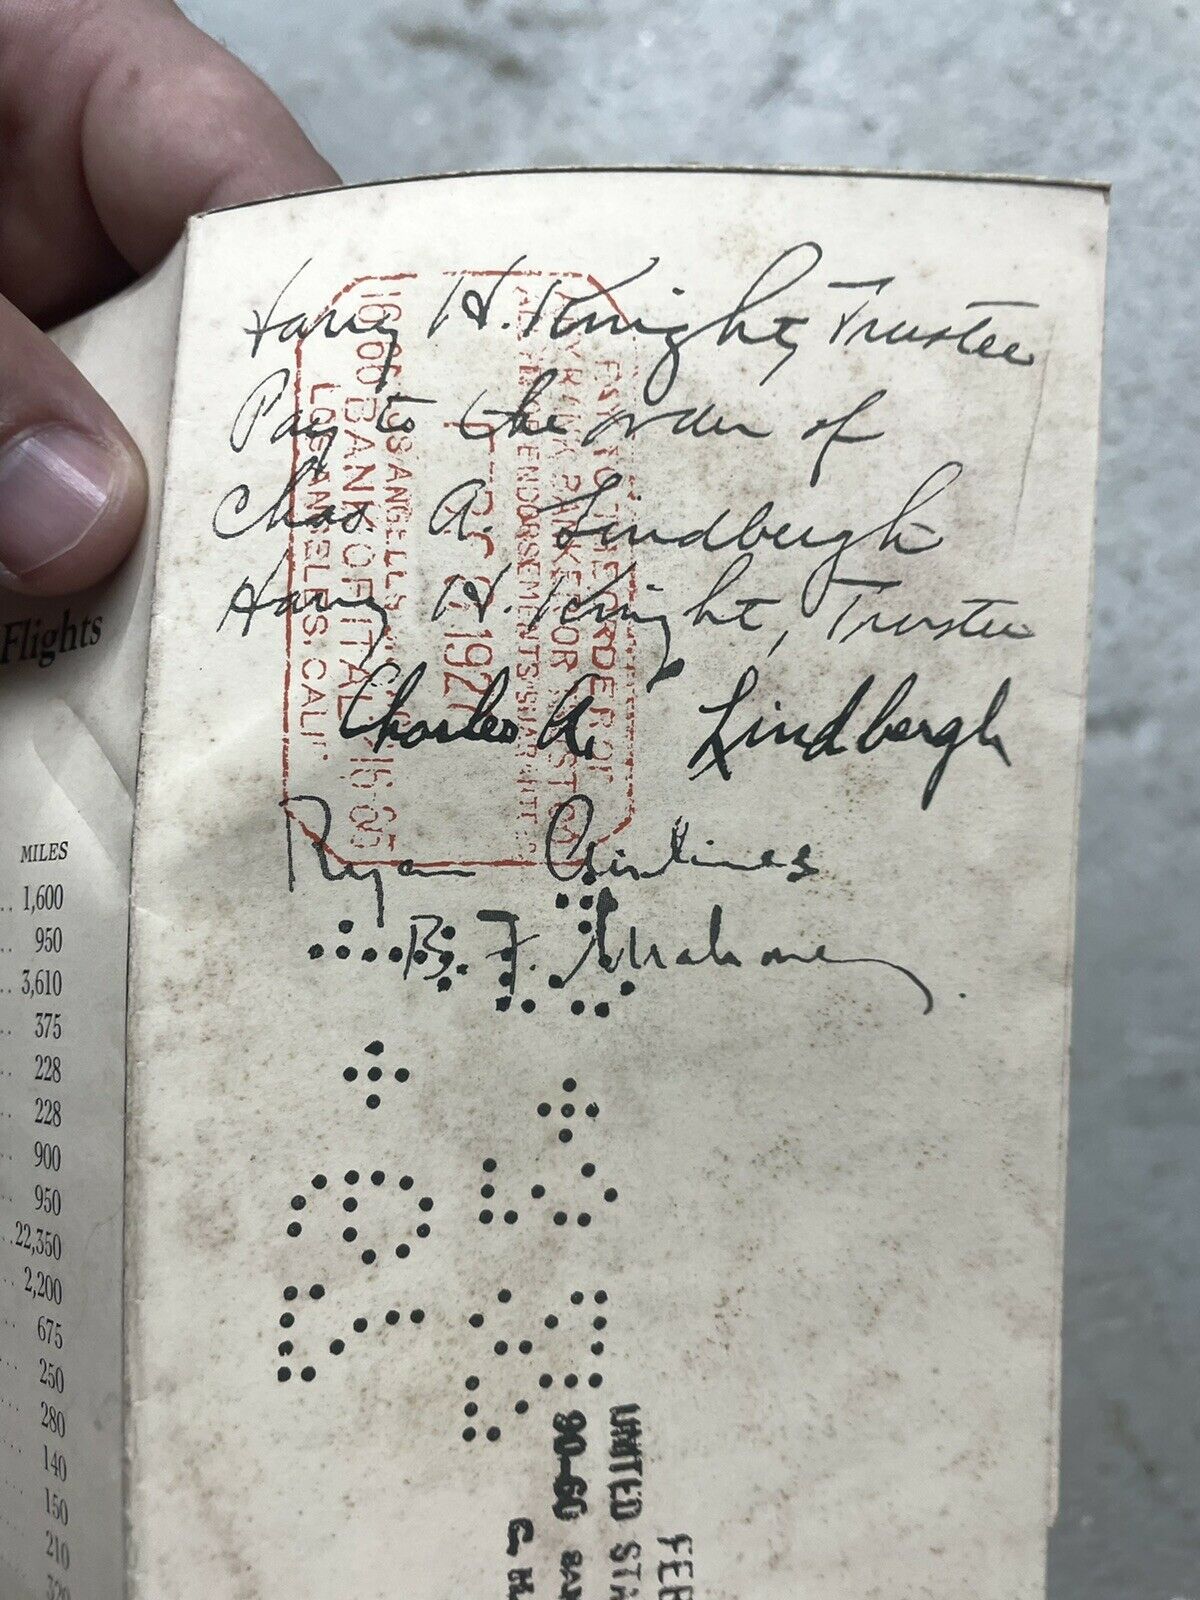 Harry H. Knight, Trustee
Pay to the order of
Chas A. Lindbergh
Harry H. Knight, Trustee
Charles A. Lindbergh
Ryan Airlines
B. F. Mahoney
PAY TO THE ORDER OF
ANY BANK BANKER OR
ENDORSEMENTS
1927
LOS ANGELES
BANK OF ITALY
16-65
LOS ANGELES, CALIF.
Flights
MILES
1,600
950
3,610
375
228
228
900
950
22,350
2,200
675
250
280
140
150
210
320
FEB
UNITED STA
90-60 SAN
G. H.